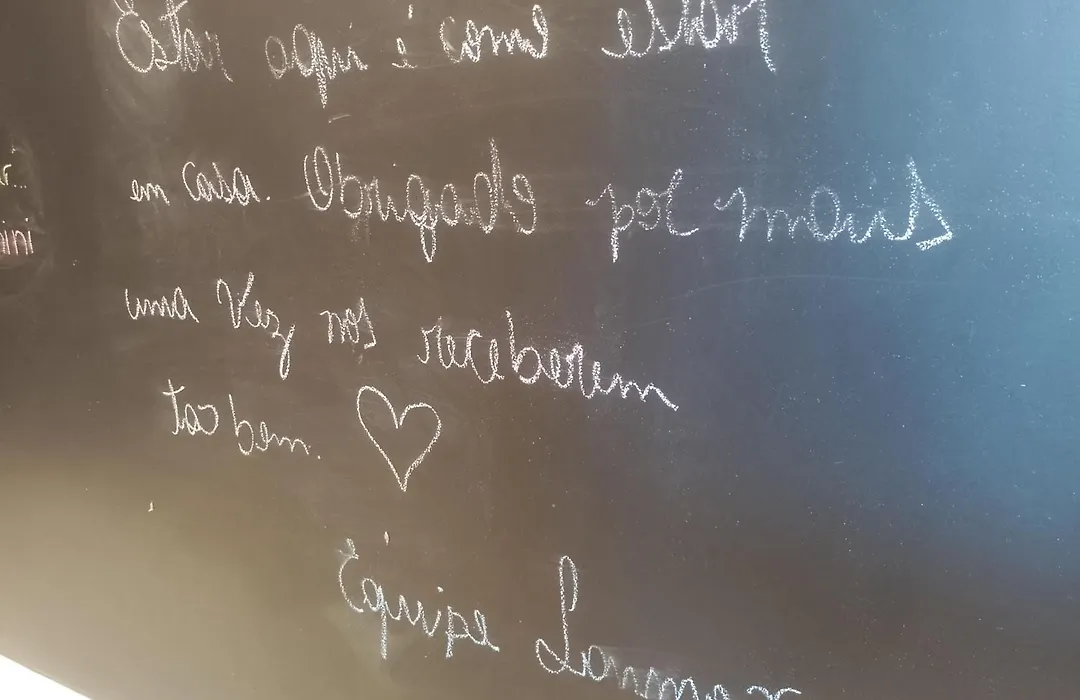 Estar aqui é como estar
em casa. Obrigado por mais
uma vez nos receberem
tao bem.
Equipe